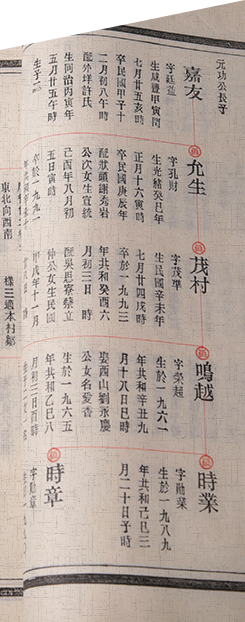 元功公長子
嘉友
字廷益
生咸豐甲寅閏
七月廿五亥時
卒民國甲子十
二月初八午時
配外垟許氏
生同治丙寅年
五月廿五午時
生子一
允生
字孔財
生光緒癸巳年
正月十六寅時
卒民國庚辰年
配狀頭謝秀岩
公次女生宣統
己酉年八月初
五日寅時
卒於一九九一
茂村
字茂準
生民國辛未年
七月廿四戌時
卒於一九九三
年共和癸酉六
月初三日時
配吳思寮蔡立
仲公女生民國
甲戌年十一月
鳴越
字榮越
生於一九六一
年共和辛丑九
月十八日巳時
娶西山劉永慶
公女名愛香
生於一九六五
年共和乙巳八
月初三日酉時
時業
字勛業
生於一九八九
年共和己巳三
月二十日子時
時章
字勛章
東北向西南
樣三適本村鄒